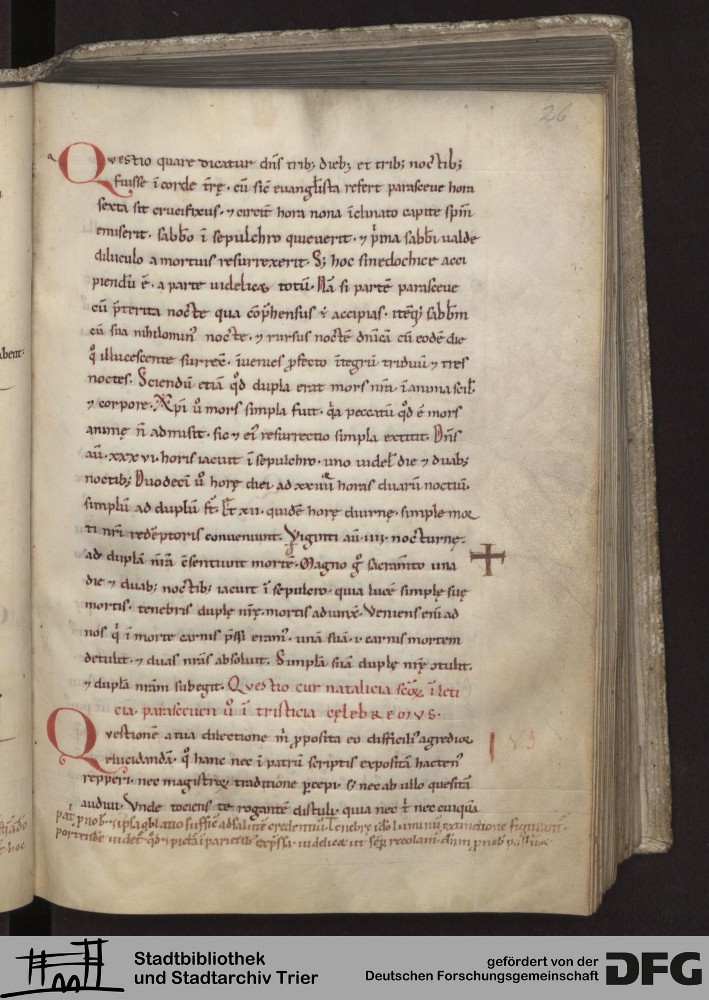 26
Questio quare dicatur dn̄s trib; dieb; et trib; noctib;
fuisse ī corde tr̄ę. cū sic̄ euangl̄ista refert parasceue hora
sexta sit crucifixus. ⁊ circit̄ hora nona īclinato capite sp̄m
emiserit. sabb̄o ī sepulchro quieuerit. ⁊ p̄ma sabb̄i ualde
diluculo a mortuis resurrexerit. S; hoc sinedochice acci
piendū ē. a parte uidelicet totū. Nā si partē parasceue
cū p̄terita nocte qua cōp̄hensus ē accipias. itēq; sabb̄m
cū sua nihilomin᷒ nocte. ⁊ rursus noctē dn̄icā cū eodē die
q̊ illucescente surrex̄. īuenies p̄fecto ītegrū triduū ⁊ tres
noctes. Sciendū etiā qd̄ dupla erat mors nr̄a. ī anima scil̄
⁊ corpore. Xp̄i ů mors simpla fuit. q̄a peccatū qd̄ ē mors
animę n̄ admisit. sic ⁊ ei᷒ resurrectio simpla extitit. Dn̄s
aū. xxxvi. horis iacuit ī sepulchro. uno uidel̄ die ⁊ duab;
noctib; Duodecī ů horę diei. ad xxiiii horas duarū noctiū.
simplū ad duplū st̄. Et xii. quidē horę diurnę. simplę mor
ti nr̄i redēptoris conueniunt. Viginti aū iiii. nocturnę.
ad duplā nr̄ā cōsentiunt mortē. Magno g̊ sacram̄to una
die ⁊ duab; noctib; iacuit ī sepulcro. quia lucē simplę suę
mortis. tenebris duplę nr̄ę. mortis adunx̄. Veniens enī ad
nos q̄ ī morte carnis p̄ssi eram᷒. unā suā. i. carnis mortem
detulit. ⁊ duas nr̄as absoluit. Simplā suā duplę nr̄ę ↄtulit.
⁊ duplā nr̄am subegit. Questio cur natalicia sc̄oꝝ ī leti
cia. parasceuen ů ī tristicia cęlebremus.
Questionē a tua dilectione m̄ p̄posita eo difficili᷒ agredior
elucidandā. q̊ hanc nec ī patrū scriptis expositā hacten᷒
repperi. nec magistroꝝ traditione p̄cepi. s; nec ab ullo quesitā
audiui. Vnde tociens te rogantē distuli. quia nec
Stadtbibliothek
und Stadtarchiv Trier
gefördert von der
Deutschen Forschungsgemeinschaft
DFG